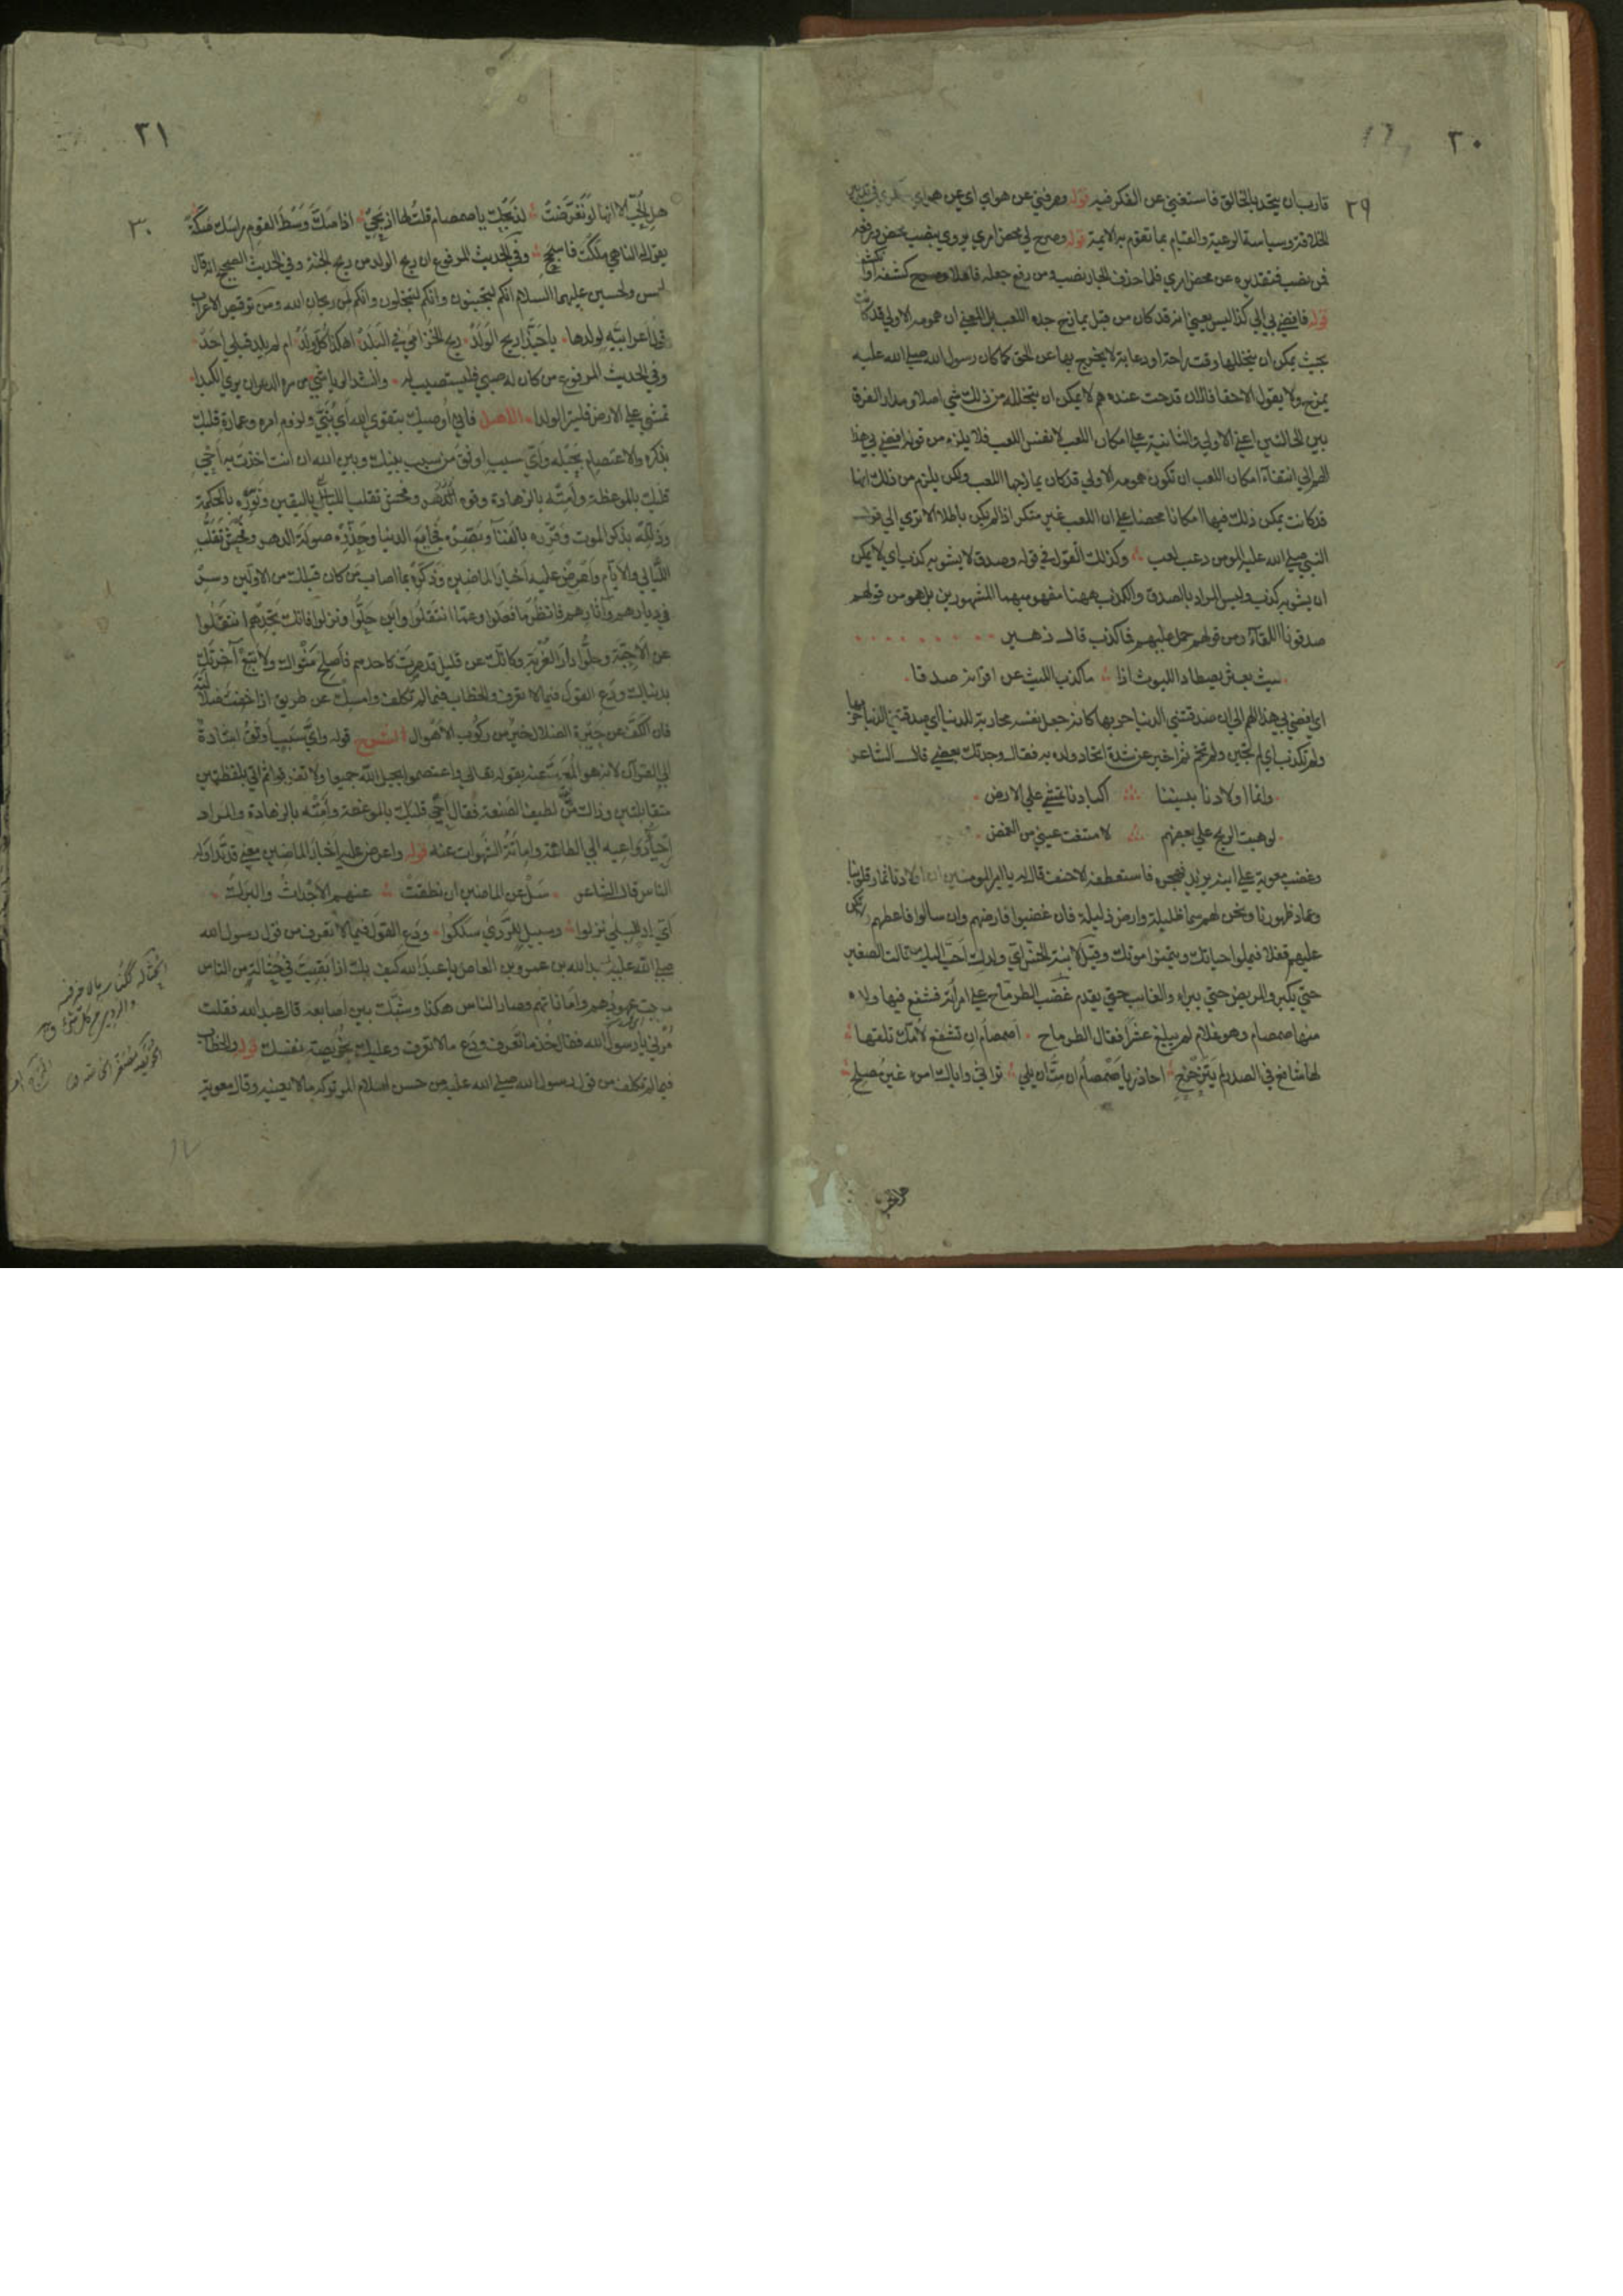 ٣٠
٢٩
قارب ان يتحد بالخالق فاستغنى عن الفكر فيه قوله وصرفني عن هواي اي عن هواي
الخلافة وسياسة الرعية والقيام بما تقوم به الايمة قوله وصرح لي محض امري يروى بنصب محض ورفعه
فمن نصب فتقديره عن محض امري فلما حذف الجار نصب ومن رفع جعله فاعلا وصرح كشف او انكشف
قوله فافضى بي الى كذا ليس يعني انه قد كان من قبل يمازح جده اللعب بل المعنى ان همومه الاولى قد كانت
بحيث يمكن ان يتخللها وقت راحة او دعابة لا يخرج بها عن الحق كما كان رسول الله صلى الله عليه
يمزح ولا يقول الا حقا فالان قد حدث عنده هم لا يمكن ان يتخلله من ذلك شي اصلا ومدار الفرق
بين الحالتين اعني الاولى والثانية على امكان اللعب لا نفس اللعب فلا يلزم من قوله افضى بي هذا
الهم الى انتفاء امكان اللعب ان تكون همومه الاولى قد كان يمازجها اللعب ولكن يلزم من ذلك انها
قد كانت يمكن ذلك فيها امكانا محضا على ان اللعب غير منكر اذا لم يكن باطلا الا ترى الى قول
النبي صلى الله عليه المومن دعب لعب وكذلك القول في قوله وصدق لا يشوبه كذب اي لا يمكن
ان يشوبه كذب وليس المراد بالصدق والكذب ههنا مفهوميهما المشهورين بل هو من قولهم
صدقونا اللقاء ومن قولهم حمل عليهم فما كذب قال زهير
ليث بعثر يصطاد الليوث اذا ما كذب الليث عن اقرانه صدقا
اي افضى بي هذا الهم الى ان صدقتني الدنيا حربها كانه جعل نفسه محاربة للدنيا اي صدقتني الدنيا حربها
ولم تكذب اي لم تجبن ولم تخم ثم اخبر عن شدة اتحاد ولده به فقال وجدتك بعضي قال الشاعر
وانما اولادنا بيننا اكبادنا تمشي على الارض
لو هبت الريح على بعضهم لامتنعت عيني من الغمض
وغضب معوية على ابنه يزيد فهجره فاستعطفه الاحنف قال له يا امير المومنين اولادنا ثمار قلوبنا
وعماد ظهورنا ونحن لهم سما ظليلة وارض ذليلة فان غضبوا فارضهم وان سالوا فاعطهم ولا تكن
عليهم قفلا فيملوا حياتك ويتمنوا موتك وقيل لابنة الخس اي ولدك احب اليك قالت الصغير
حتى يكبر والمريض حتى يبراء والغايب حتى يقدم غضب الطرماح على امراته فشفع فيها ولده
منها صمصام وهو غلام لم يبلغ عشرا فقال الطرماح اصمصام ان تشفع لامك تلقها
لها شافع في الصدر لم يتزحزح احاذر يا صمصام ان مت ان يلي تراثي واياك امرء غير مصلح
٣١
٣٠
هل الحب الا انها لو تعرضت لذبحك يا صمصام قلت لها اذبحي اذا صك وسط القوم راسك صكة
يقول له الناهي ملكت فاسجح وفي الحديث المرفوع ان ريح الولد من ريح الجنة وفي الحديث الصحيح انه قال
لحسن ولحسين عليهما السلام انكم لتجبنون وانكم لتبخلون وانكم لمن ريحان الله ومن ترقيص الاعراب
قول اعرابية لولدها يا حبذا ريح الولد ريح الخزامى في البلد اهكذا كل ولد ام لم يلد قبلي احد
وفي الحديث المرفوع من كان له صبي فليستصب له وانشد الرياشي من سره الدهر ان يرى الكبدا
تمشي على الارض فلير الولدا الاصل فاني اوصيك بتقوى الله اي بني ولزوم امره وعمارة قلبك
بذكره والاعتصام بحبله واي سبب اوثق من سبب بينك وبين الله ان انت اخذت به احي
قلبك بالموعظة وامته بالزهادة وقوه باليقين ونوره بالحكمة
وذلله بذكر الموت وقرره بالفناء وبصره فجايع الدنيا وحذره صولة الدهر وفحش تقلب
الليالي والايام واعرض عليه اخبار الماضين وذكره بما اصاب من كان قبلك من الاولين وسر
في ديارهم واثارهم فانظر ما فعلوا وعما انتقلوا واين حلوا ونزلوا فانك تجدهم انتقلوا
عن الاحبة وحلوا دار الغربة وكانك عن قليل قد صرت كاحدهم فاصلح مثواك ولا تبع آخرتك
بدنياك ودع القول فيما لا تعرف والخطاب فيما لم تكلف وامسك عن طريق اذا خفت ضلالته
فان الكف عن حيرة الضلال خير من ركوب الاهوال الشرح قوله واي سبب اوثق اشارة
الى القران لانه هو المعبر عنه بقوله تعالى واعتصموا بحبل الله جميعا ولا تفرقوا ثم اتى بلفظتين
متقابلتين وذلك من لطيف الصنعة فقال احي قلبك بالموعظة وامته بالزهادة والمراد
احياء دواعيه الى الطاعة واماتة الشهوات عنه قوله واعرض عليه اخبار الماضين معنى قد تداوله
الناس قال الشاعر سل عن الماضين ان نطقت عنهم الاجداث والبرك
اي دار للبلى نزلوا وسبيل للردى سلكوا ودع القول فيما لا تعرف من قول رسول الله
صلى الله عليه لعبد الله بن عمرو بن العاص يا عبد الله كيف بك اذا بقيت في حثالة من الناس
مرجت عهودهم واماناتهم وصار الناس هكذا وشبك بين اصابعه قال عبد الله فقلت
مرني يا رسول الله فقال خذ ما تعرف ودع ما لا تعرف وعليك بخويصة نفسك قوله والخطاب
فيما لم تكلف من قول رسول الله صلى الله عليه من حسن اسلام المرء تركه ما لا يعنيه وقال معوية